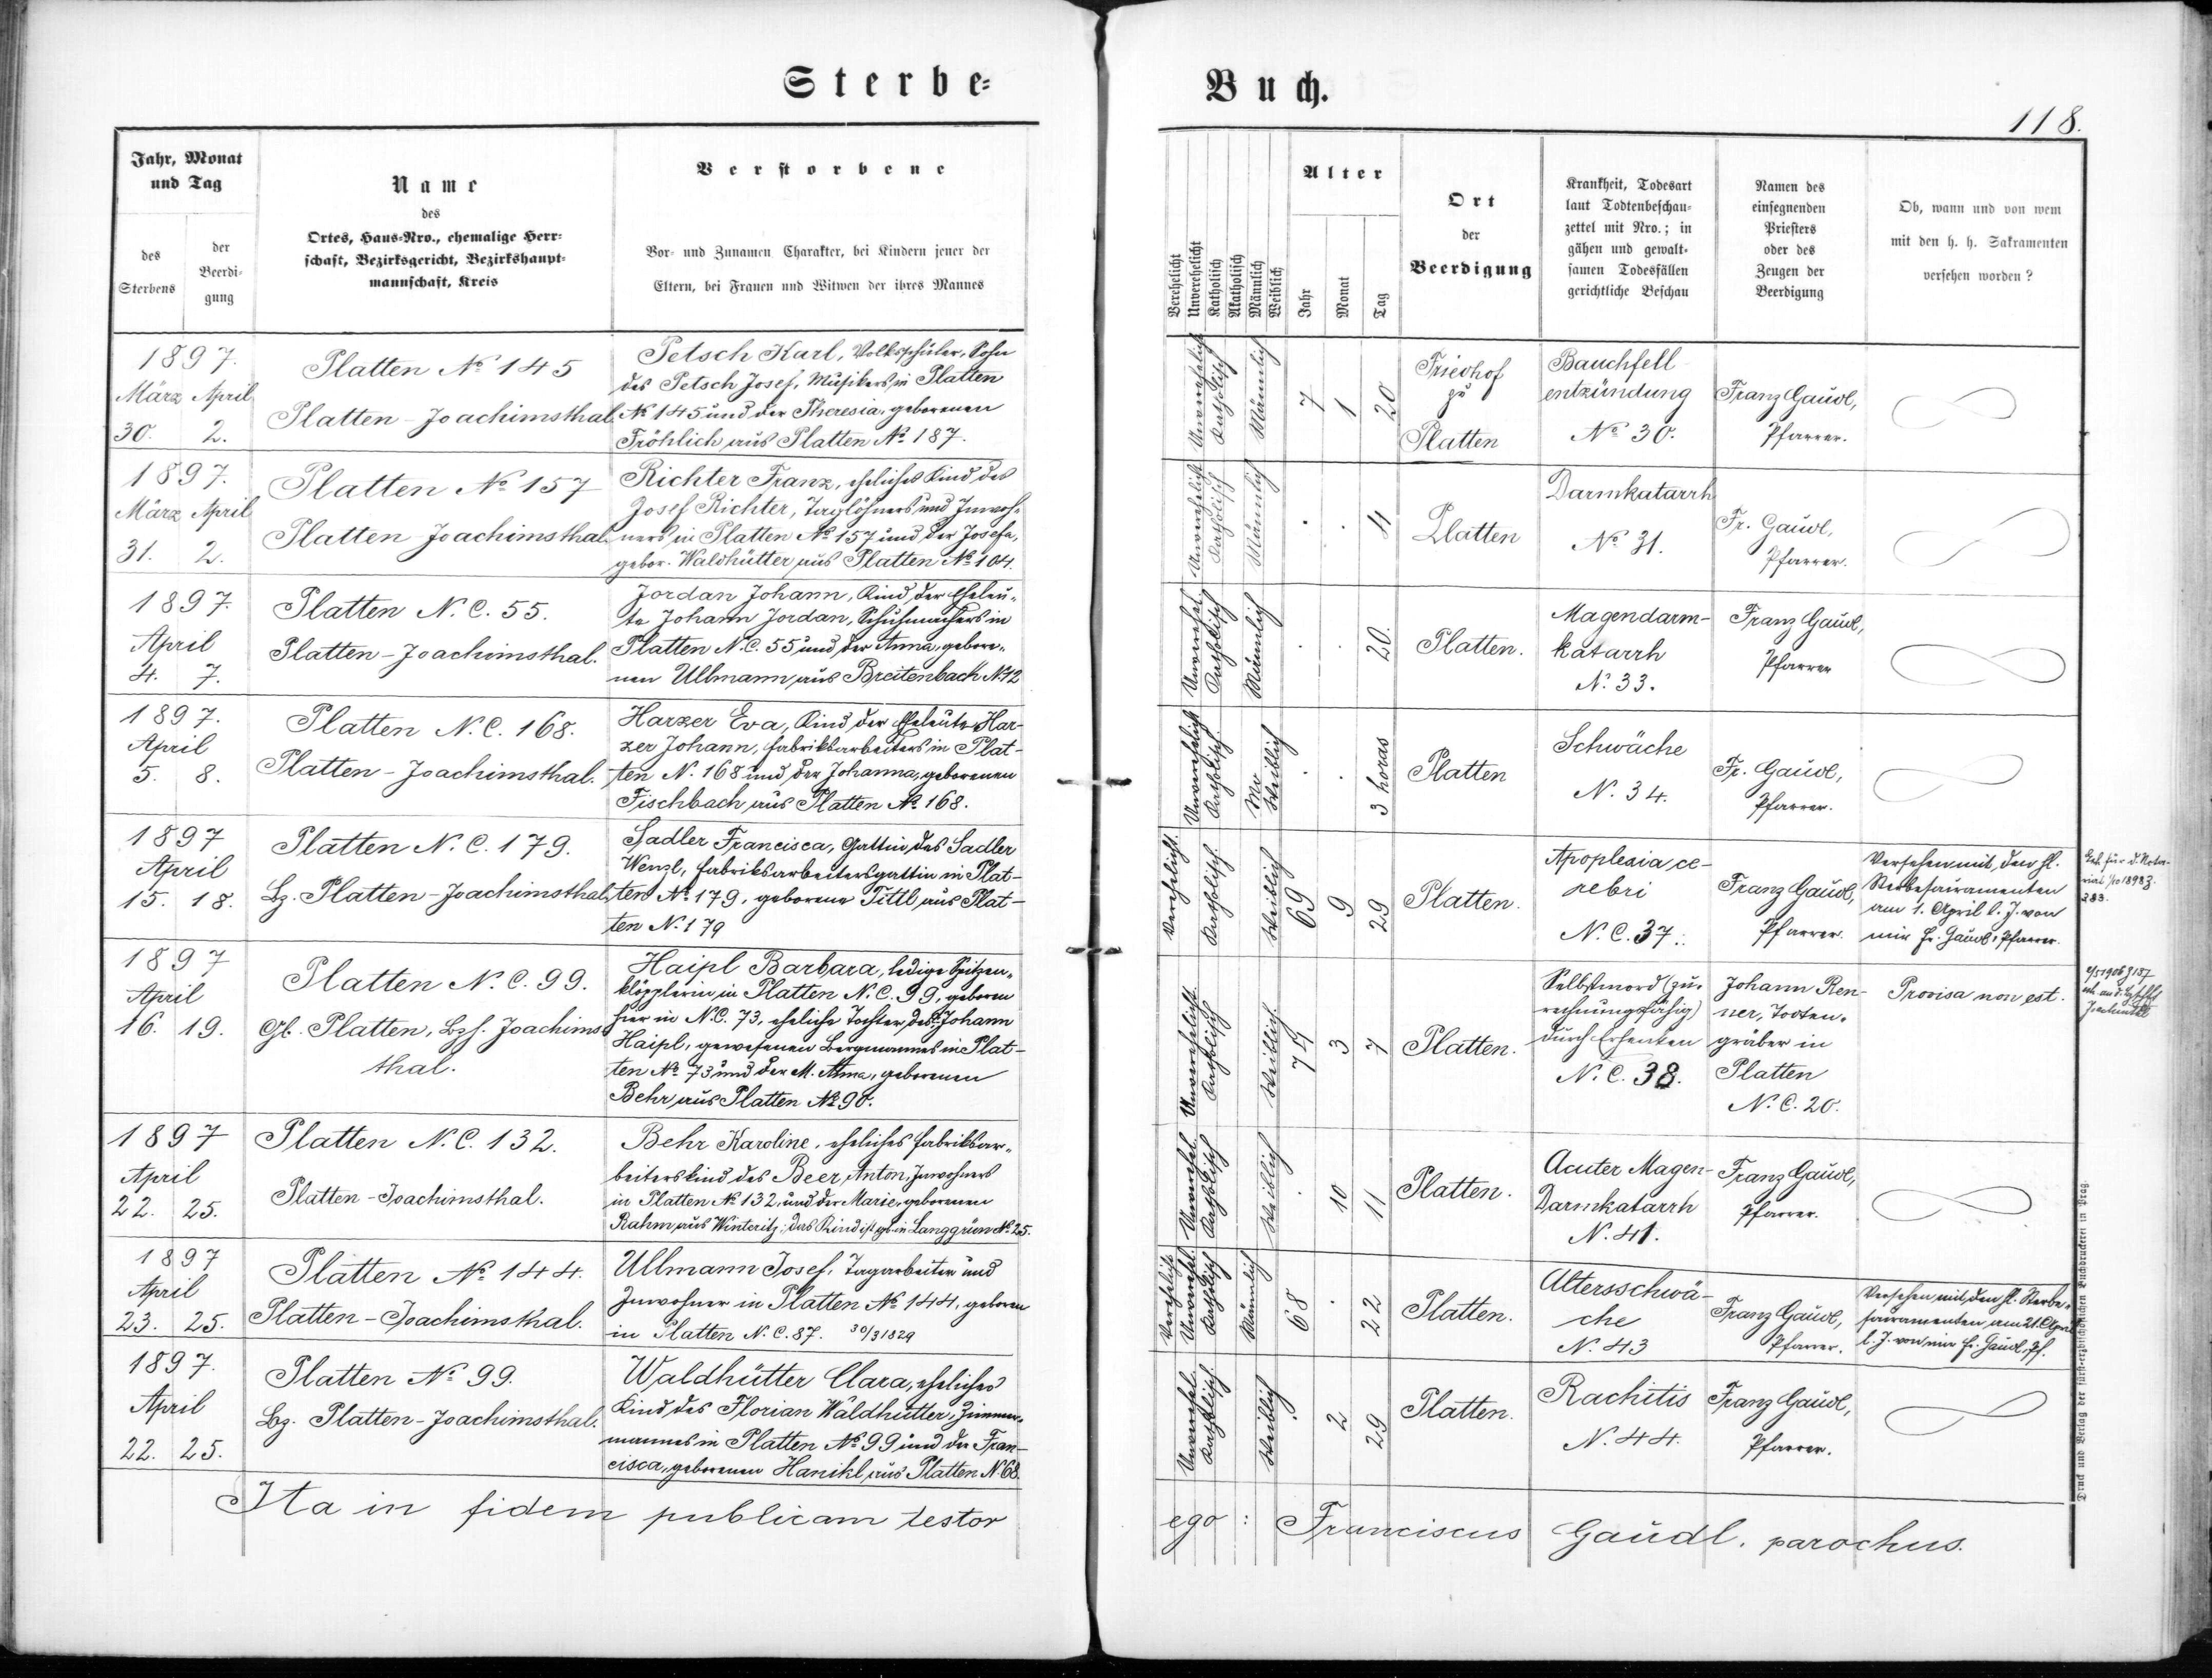 Sterbe-
Buch.
118.
Jahr, Monat
und Tag
des
Sterbens
der
Beerdi-
gung
Name
des
Ortes, Haus-Nro., ehemalige Herr-
schaft, Bezirksgericht, Bezirkshaupt-
mannschaft, Kreis
Verstorbene
Vor- und Zunamen Charakter, bei Kindern jener der
Eltern, bei Frauen und Witwen der ihres Mannes
Verehelicht
Unverehelicht
Katholisch
Akatholisch
Männlich
Weiblich
Alter
Jahr
Monat
Tag
Ort
der
Beerdigung
Krankheit, Todesart
laut Todtenbeschau-
zettel mit Nro.; in
gähen und gewalt-
samen Todesfällen
gerichtliche Beschau
Namen des
einsegnenden
Priesters
oder des
Zeugen der
Beerdigung
Ob, wann und von wem
mit den h. h. Sakramenten
versehen worden?
1897.
März April
30. 2.
Platten No 145
Platten-Joachimsthal
Petsch Karl, Volksschüler, Sohn
des Petsch Josef, Musikers in Platten
No 145 und der Theresia, geborenen
Fröhlich aus Platten No 187.
Unverehelicht
Katholisch
Männlich
7 1 20
Friedhof
zu
Platten
Bauchfell
entzündung
No 30.
Franz Gaudl,
Pfarrer.
1897.
März April
31. 2.
Platten No 157
Platten Joachimsthal.
Richter Franz, eheliches Kind des
Josef Richter, Taglöhners und Inwoh-
ners in Platten No 157 und der Josefa,
gebor. Waldhütter aus Platten No 104.
Unverehelicht
Katholisch
Männlich
. . 4
Platten
Darmkatarrh
No 31.
Fr. Gaudl,
Pfarrer.
1897.
April
4. 7.
Platten N.C. 55.
Platten-Joachimsthal.
Jordan Johann, Kind der Eheleu-
te Johann Jordan, Schuhmachers in
Platten N.C. 55 und der Anna, gebore-
nen Ullmann aus Breitenbach N 12
Unverehel.
Katholisch
Männlich
. . 20.
Platten.
Magendarm-
katarrh
N. 33.
Franz Gaudl,
Pfarrer
1897.
April
5. 8.
Platten N.C. 168.
Platten-Joachimsthal.
Harzer Eva, Kind der Eheleute Har-
zer Johann, Fabriksarbeiters in Plat-
ten N. 168 und der Johanna, geborenen
Fischbach aus Platten No 168.
Unverehelicht
Katholisch.
Weiblich
. . 3 horas
Platten
Schwäche
N. 34.
Fr. Gaudl,
Pfarrer.
1897
April
15. 18.
Platten N.C. 179.
Bz. Platten-Joachimsthal,
Sadler Francisca, Gattin des Sadler
Wenzl, Fabriksarbeitersgattin in Plat-
ten No 179, geborene Tittl aus Plat-
ten N. 179
Verehelicht.
Katholisch.
Weiblich
69 9 29
Platten.
Apoplexia ce-
rebri
N.C. 37.
Franz Gaudl,
Pfarrer.
Versehen mit den hl.
Sterbesacramenten
am 1. April l. J. von
mir Fr. Gaudl, Pfarrer.
1897
April
16. 19.
Platten N.C. 99.
Gb. Platten, Bzh. Joachims
thal.
Haipl Barbara, ledige Spitzen-
klöpplerin in Platten N.C. 99, geboren
hier in N.C. 73, eheliche Tochter des Johann
Haipl, gewesenen Bergmannes in Plat-
ten No 73 und der M. Anna, geborenen
Behr aus Platten No 90.
Unverehelicht.
Katholisch
Weiblich.
74 3 7
Platten.
Selbstmord (zu-
rechnungsfähig)
durch Erhenken
N.C. 38.
Johann Ren-
ner, Todten-
gräber in
Platten
N.C. 20.
Provisa non est.
1897
April
22. 25.
Platten N.C. 132.
Platten-Joachimsthal.
Behr Karoline, eheliches Fabriksar-
beiterskind des Beer Anton, Inwohners
in Platten No 132, und der Marie, geborenen
Rahm aus Winteritz; das Kind ist geb. in Langgrün No 25.
Unverehel.
Katholisch
Weiblich
. 10 11
Platten.
Acuter Magen-
Darmkatarrh
N. 41.
Franz Gaudl,
Pfarrer.
1897
April
23. 25.
Platten No 144.
Platten-Joachimsthal.
Ullmann Josef, Tagarbeiter und
Inwohner in Platten No 144, geboren
in Platten N.C. 87. 30/3 1829
Verehelicht
Unverehel.
Katholisch
Männlich
68 . 22
Platten.
Altersschwä-
che
N. 43
Franz Gaudl,
Pfarrer.
Versehen mit den hl. Sterbe-
sacramenten am 21. April
l. J. von mir Fr. Gaudl, Pf.
1897.
April
22. 25.
Platten No 99.
Bz. Platten-Joachimsthal.
Waldhütter Clara, eheliches
Kind des Florian Waldhütter, Zimmer-
mannes in Platten No 99 und der Fran-
cisca, geborenen Hanikl aus Platten N. 68.
Unverehel.
Katholisch.
Weiblich.
. 2 29
Platten.
Rachitis
N. 44.
Franz Gaudl,
Pfarrer.
Ita in fidem publicam testor
ego: Franciscus Gaudl, parochus.
Druck und Verlag der fürst-erzbischöflichen Buchdruckerei in Prag.